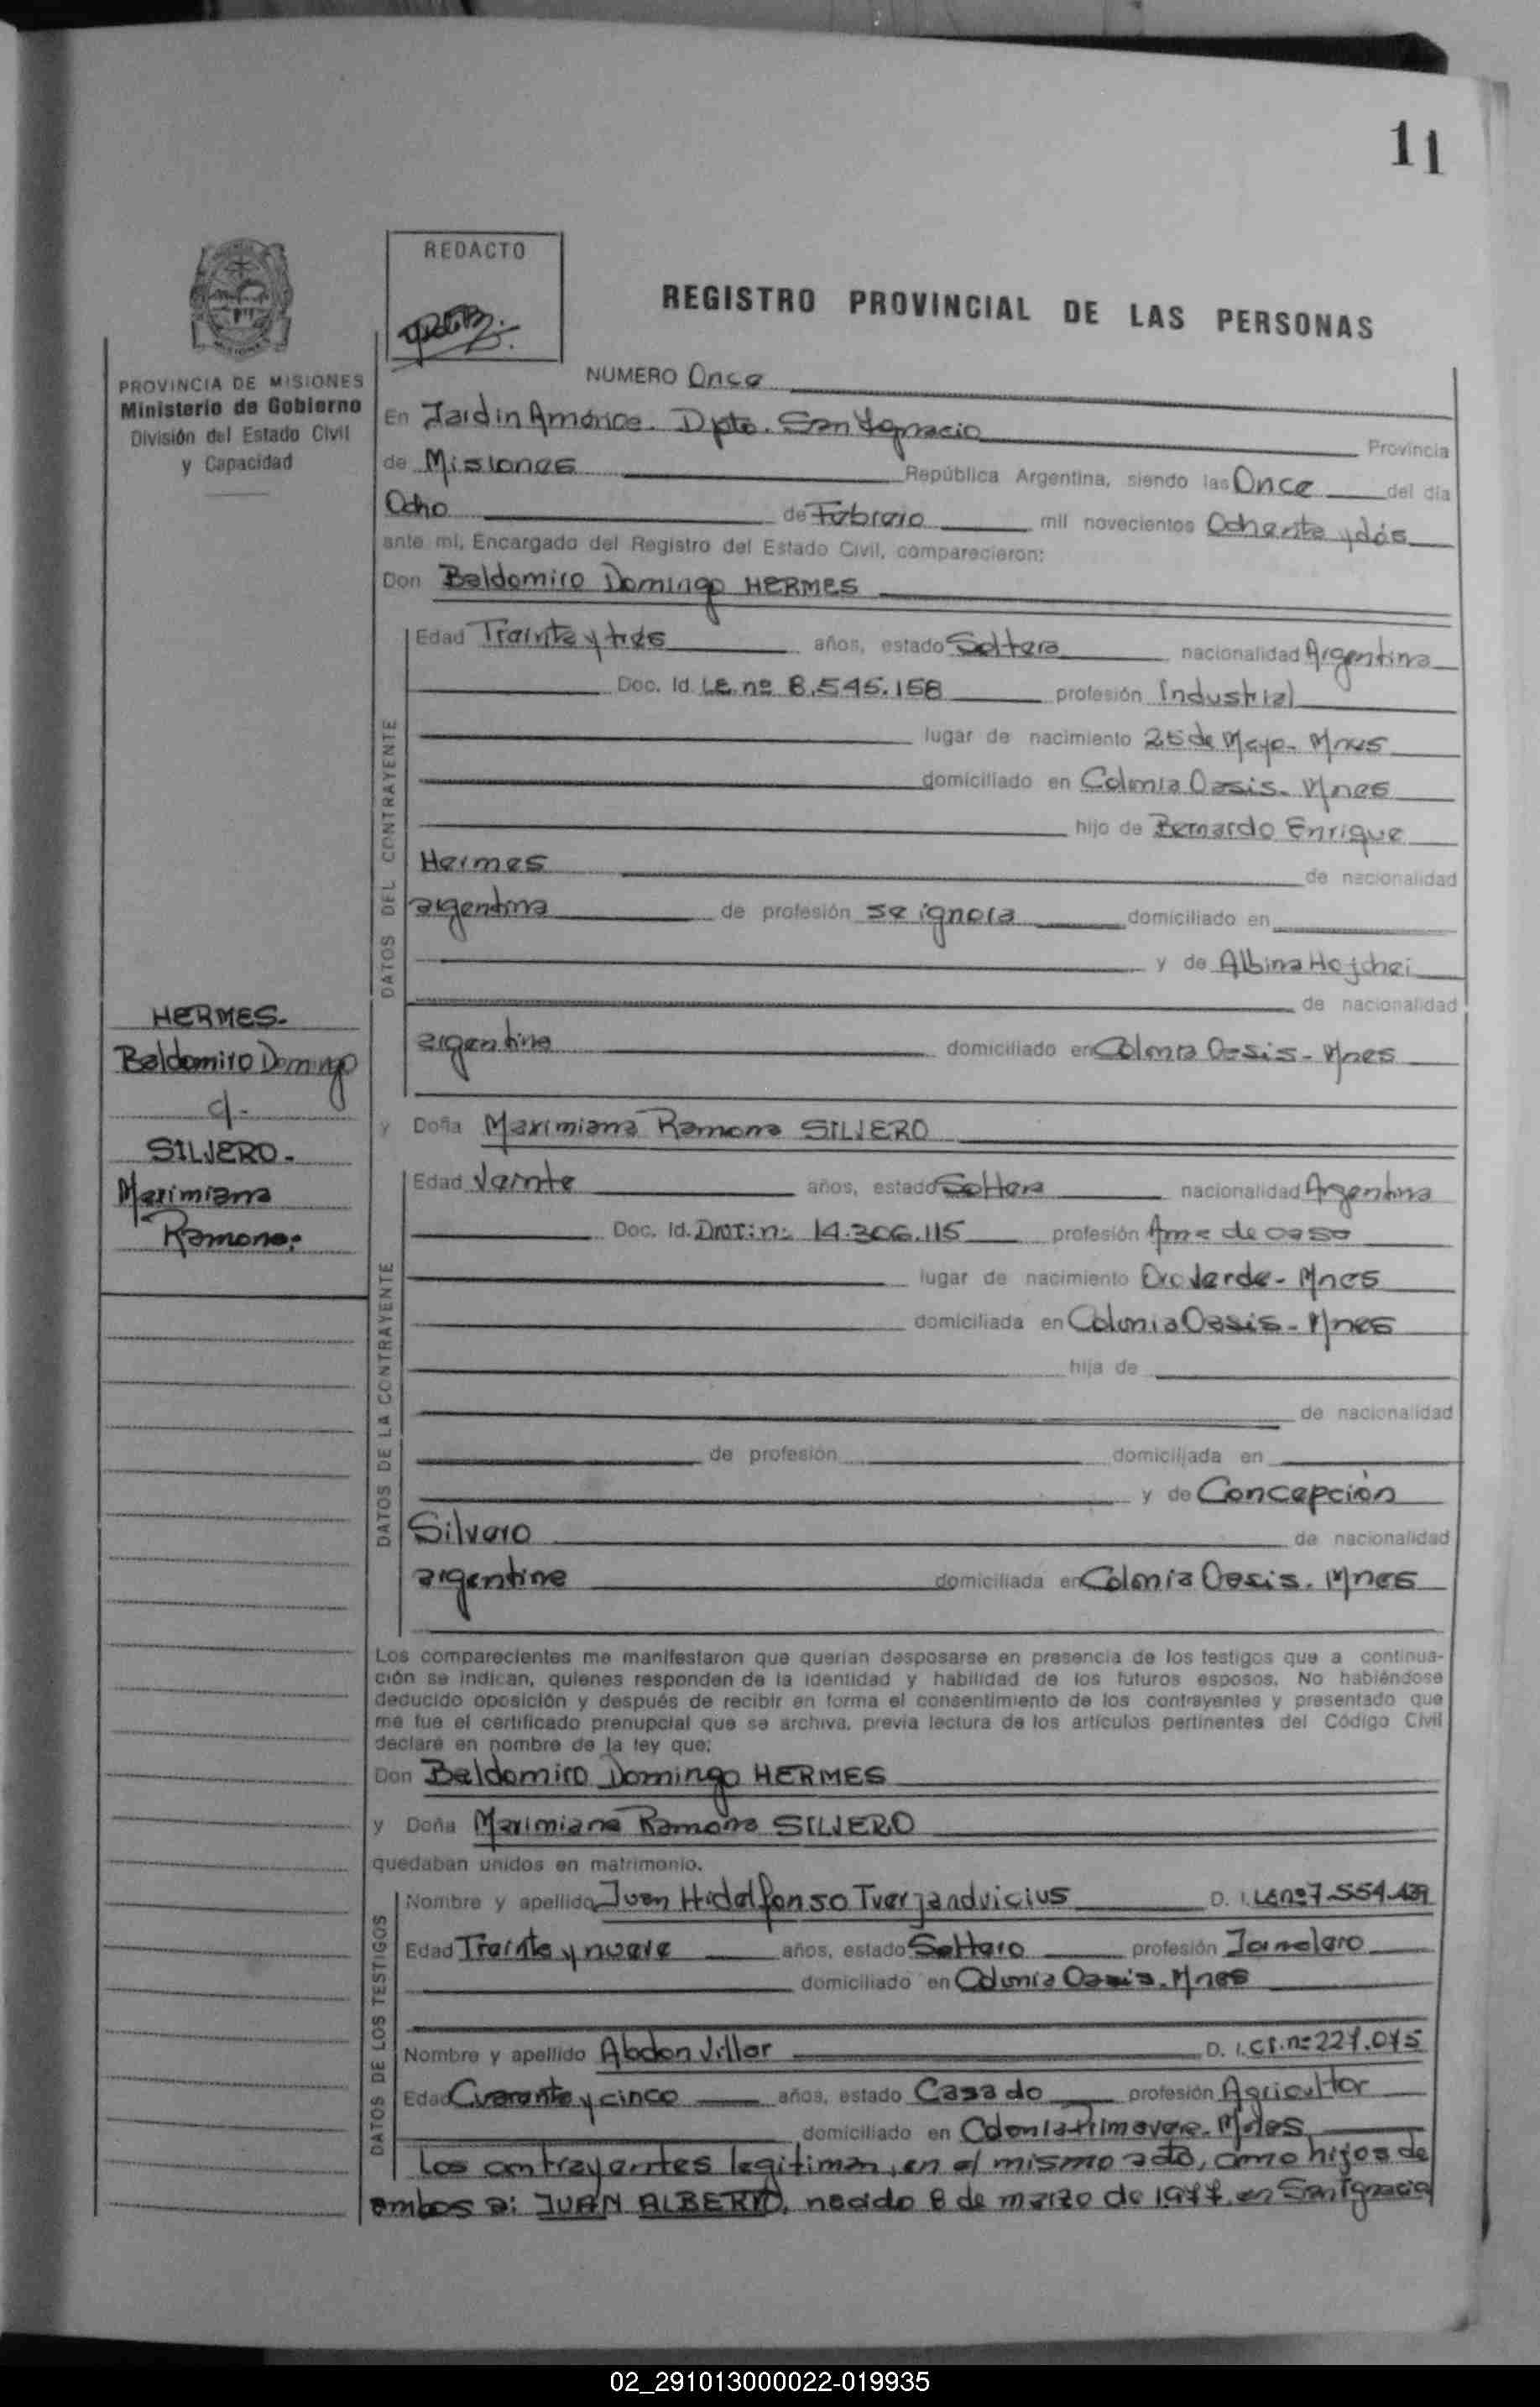 11
REDACTO
REGISTRO PROVINCIAL DE LAS PERSONAS
PROVINCIA DE MISIONES
Ministerio de Gobierno
División del Estado Civil
y Capacidad
NUMERO Once
En Jardin América. Dpto. San Ignacio Provincia
de Misiones República Argentina, siendo las Once del día
Ocho de Febrero mil novecientos Ochenta y dós
ante mí, Encargado del Registro del Estado Civil, comparecieron:
Don Baldomiro Domingo HERMES
DATOS DEL CONTRAYENTE
Edad Treinta y trés años, estado Soltero nacionalidad Argentina
Doc. Id. L.E. nº 8.545.158 profesión Industrial
lugar de nacimiento 25 de Mayo - Mnes
domiciliado en Colonia Oasis - Mnes
hijo de Bernardo Enrique
Hermes de nacionalidad
argentina de profesión se ignora domiciliado en
y de Albina
de nacionalidad
argentina domiciliado en Colonia Oasis - Mnes
HERMES.
Baldomiro Domingo
c/.
SILVERO.
Maximiana
Ramona.
y Doña Maximiana Ramona SILVERO
DATOS DE LA CONTRAYENTE
Edad Veinte años, estado Soltera nacionalidad Argentina
Doc. Id. 14.306.115 profesión Ama de casa
lugar de nacimiento Oro Verde - Mnes
domiciliada en Colonia Oasis - Mnes
hija de
de nacionalidad
de profesión domiciliada en
y de Concepción
Silvero de nacionalidad
argentina domiciliada en Colonia Oasis. Mnes
Los comparecientes me manifestaron que querían desposarse en presencia de los testigos que a continua-
ción se indican, quienes responden de la identidad y habilidad de los futuros esposos. No habiéndose
deducido oposición y después de recibir en forma el consentimiento de los contrayentes y presentado que
me fue el certificado prenupcial que se archiva, previa lectura de los artículos pertinentes del Código Civil
declaré en nombre de la ley que:
Don Baldomiro Domingo HERMES
y Doña Maximiana Ramona SILVERO
quedaban unidos en matrimonio.
DATOS DE LOS TESTIGOS
Nombre y apellido Juan Hidelfonso D. I. L.E. nº 7.554.439
Edad Treinta y nueve años, estado Soltero profesión Jornalero
domiciliado en Colonia Oasis - Mnes
Nombre y apellido Abdon Villar D. I. C.I. nº 227.075
Edad Cuarenta y cinco años, estado Casado profesión Agricultor
domiciliado en Colonia Primavera - Mnes
Los contrayentes legitiman, en el mismo acto, como hijos de
ambos a: JUAN ALBERTO, nacido 8 de marzo de 1977, en San Ignacio
02_291013000022-019935